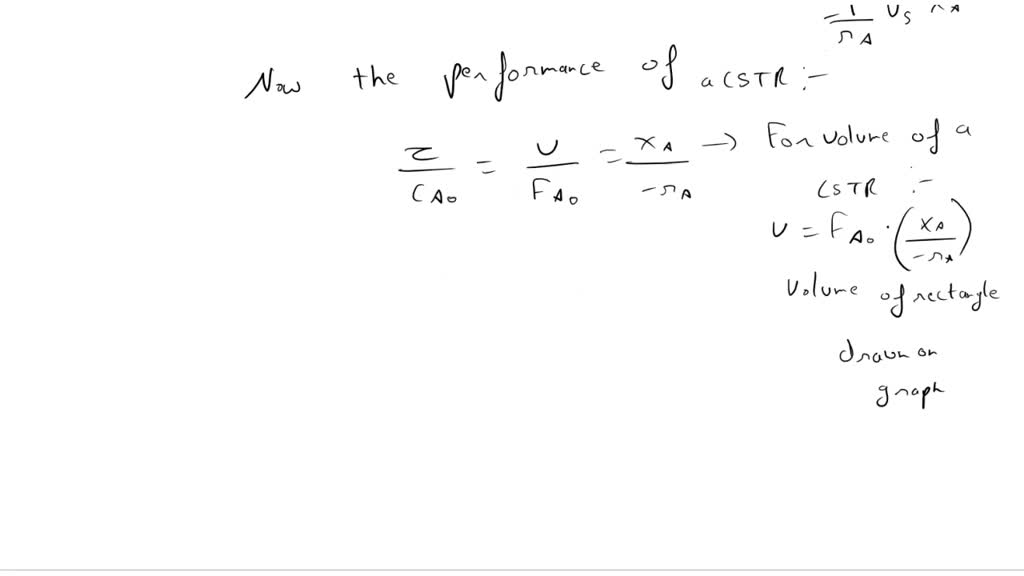 = 1/rA vs xA
Now the performance of a CSTR :-
τ/CA0 = V/FA0 = XA/-rA → For volume of a
CSTR :-
V = FA0 · (XA/-rA)
Volume of rectangle
drawn on
graph